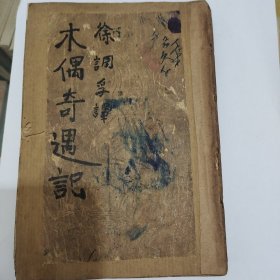 木偶奇遇記
徐調孚譯